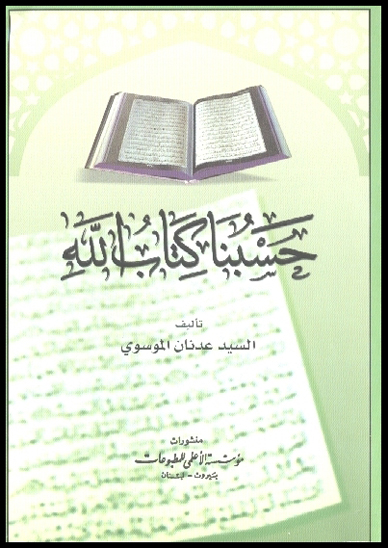 حَسْبُنَا كِتَابُ اللّٰهِ
تأليف
السيد عدنان الموسوي
منشورات
مؤسسة الأعلمي للمطبوعات
بيروت - لبنان